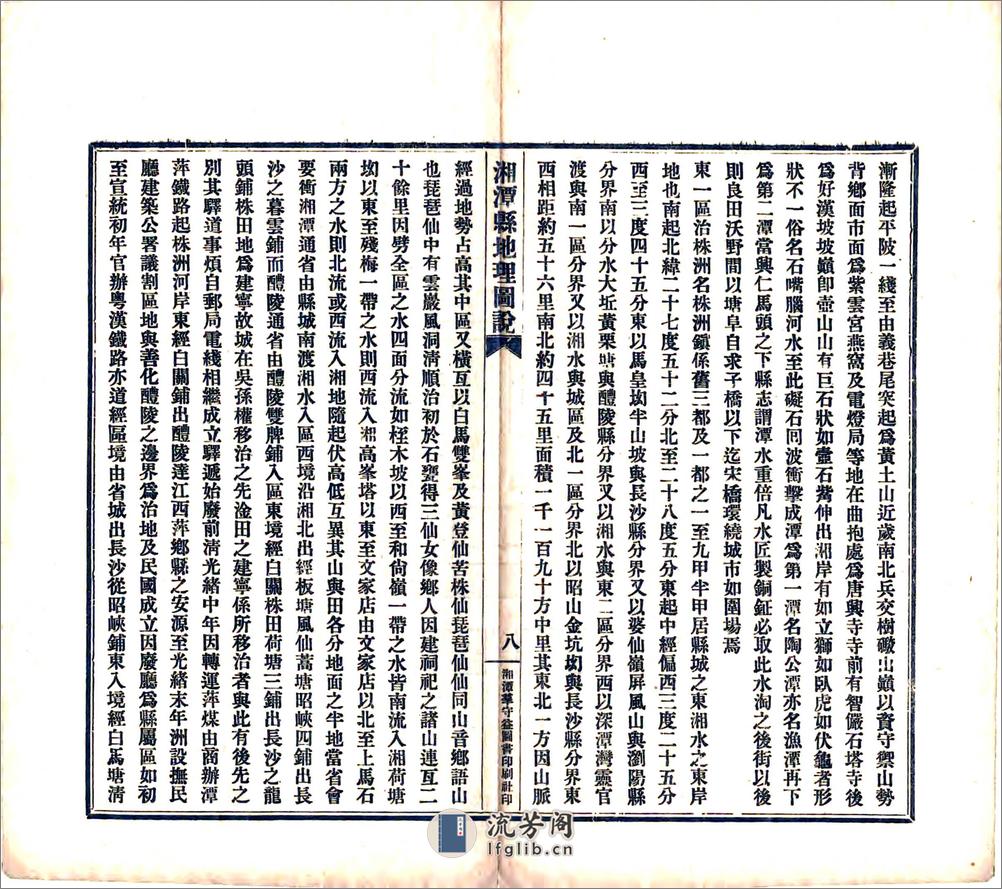 漸隆起平陂一綫至由義巷尾突起爲黃土山近歲南北兵交樹礮山巔以資守禦山勢
背鄉面市面爲紫雲宮燕窩及電燈局等地在曲抱處爲唐興寺寺前有智儼石塔寺後
爲好漢坡坡巔卽壺山山有巨石狀如壺石觜伸出湘岸有如立獅如臥虎如伏龜者形
狀不一俗名石嘴腦河水至此礙石囘波衝擊成潭爲第一潭名陶公潭亦名漁潭再下
爲第二潭當興仁馬頭之下縣志謂潭水重倍凡水匠製銅鉦必取此水淘之後街以後
則良田沃野間以塘阜自求子橋以下迄宋橋環繞城市如圍場焉
東一區治株洲名株洲鎭係舊三都及一都之一至九甲半甲居縣城之東湘水之東岸
地也南起北緯二十七度五十二分北至二十八度五分東起中經偏西三度二十五分
西至三度四十五分東以馬皇坳半山坡與長沙縣分界又以婆仙嶺屏風山與瀏陽縣
分界南以分水大坵黃栗塘與醴陵縣分界又以湘水與東二區分界西以深潭灣靈官
渡與南一區分界又以湘水與城區及北一區分界北以昭山金坑坳與長沙縣分界東
西相距約五十六里南北約四十五里面積一千一百九十方中里其東北一方因山脈
湘潭縣地理圖說
八
湘潭華守益圖書印刷社印
經過地勢占高其中區又橫亙以白馬雙峯及黃登仙苦株仙琵琶仙仙同山音鄉語山
也琵琶仙中有雲巖風洞淸順治初於石甕得三仙女像鄉人因建祠祀之諸山連亙二
十餘里因劈全區之水四面分流如桎木坡以西至和尙嶺一帶之水皆南流入湘荷塘
坳以東至殘梅一帶之水則西流入湘高峯塔以東至文家店由文家店以北至上馬石
兩方之水則北流或西流入湘地隨起伏高低互異其山與田各分地面之半地當省會
要衝湘潭通省由縣城南渡湘水入區西境沿湘北出經板塘風仙蒿塘昭峽四鋪出長
沙之暮雲鋪而醴陵通省由醴陵雙牌鋪入區東境經白關株田荷塘三鋪出長沙之龍
頭鋪株田地爲建寧故城在吳孫權移治之先淦田之建寧係所移治者與此有後先之
別其驛道事煩自郵局電綫相繼成立驛遞始廢前淸光緒中年因轉運萍煤由商辦潭
萍鐵路起株洲河岸東經白關鋪出醴陵達江西萍鄉縣之安源至光緒末年洲設撫民
廳建築公署議割區地與善化醴陵之邊界爲治地及民國成立因廢廳爲縣屬區如初
至宣統初年官辦粵漢鐵路亦道經區境由省城出長沙從昭峽鋪東入境經白馬塘淸
流芳阁
lfglib.cn